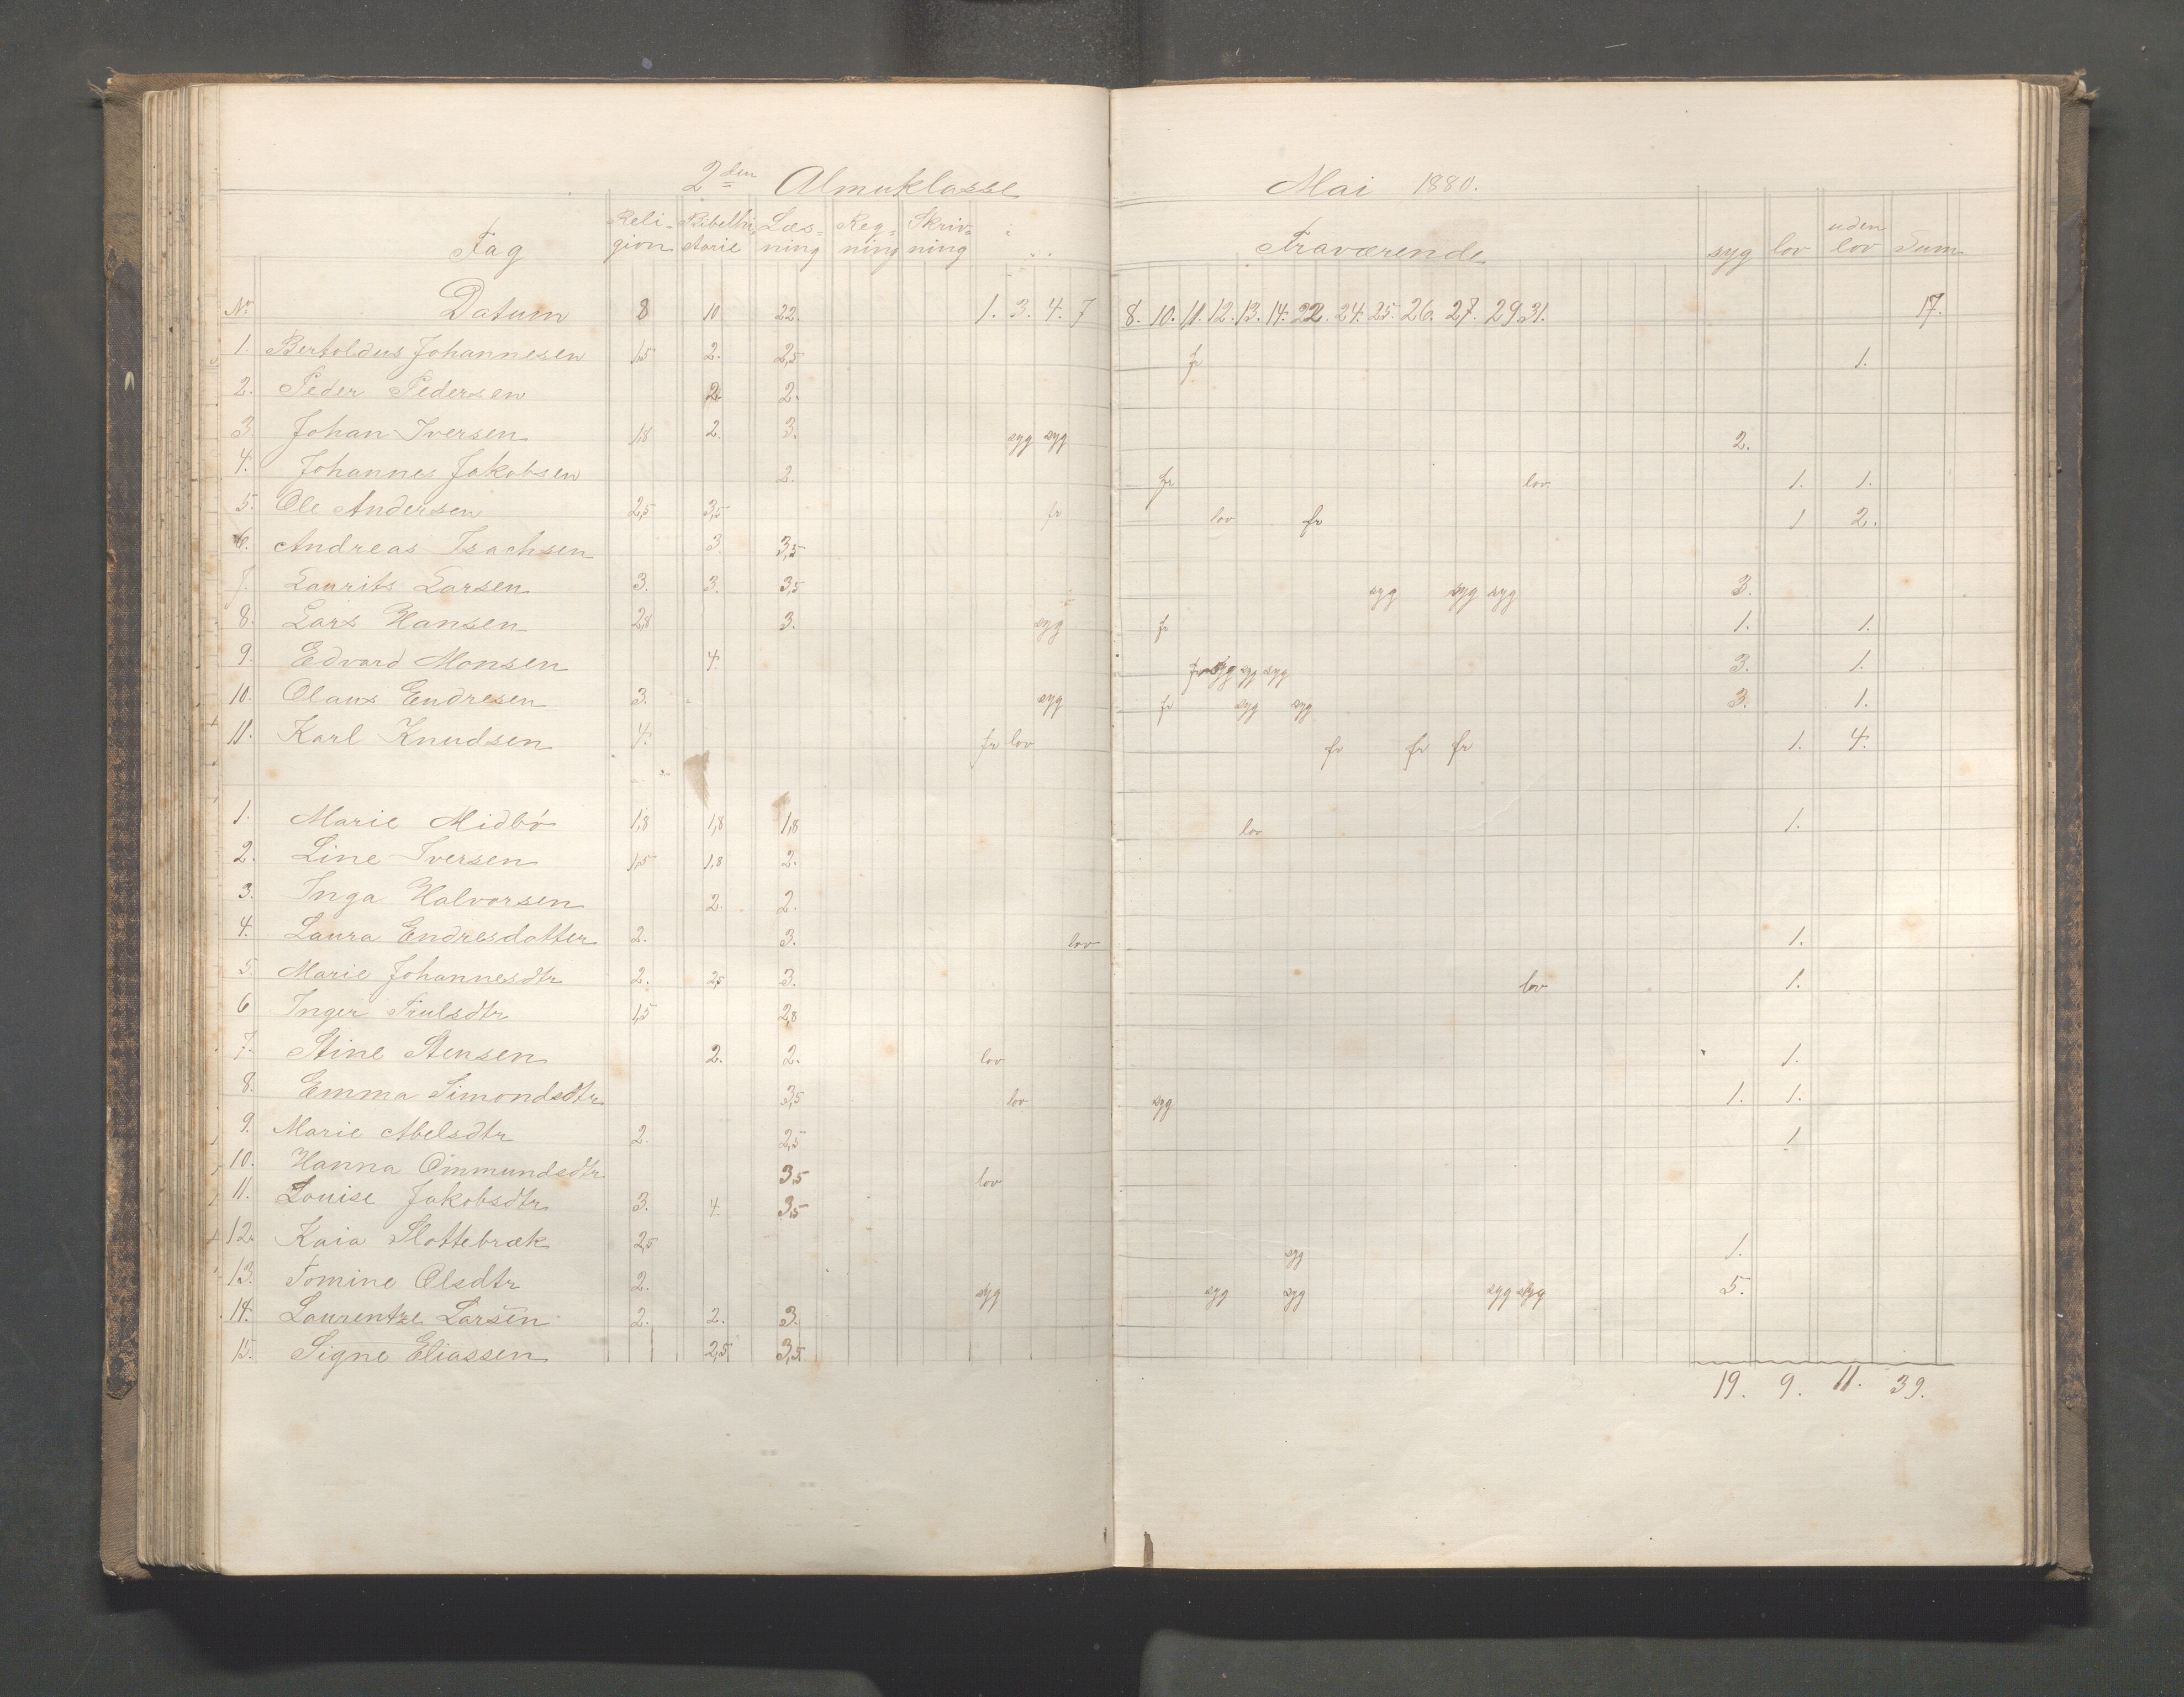 2den Almuklasse Mai 1880.
Fag Religion Bibelhistorie Læsning Regning Skrivning Fraværende syg lov uden lov Sum
No Datum 8 10 22. 1. 3. 4. 7 8. 10. 11. 12. 13. 14. 22. 24. 25. 26. 27. 29. 31. 17.
1. Bertoldus Johannesen 1,5 2. 2,5 fr 1.
2. Peder Pedersen 2 2.
3 Johan Iversen 1,8 2. 3. syg syg 2.
4. Johannes Jakobsen 2. fr lov 1. 1.
5. Ole Andersen 2,5 3,5 fr lov fr 1 2.
6. Andreas Isachsen 3 3,5
7. Laurits Larsen 3. 3. 3,5 syg syg syg 3.
8. Lars Hansen 2,8 3. syg fr 1. 1.
9. Edvard Monsen 4. fr syg syg syg 3. 1.
10. Olaus Endresen 3. syg fr syg syg 3. 1.
11. Karl Knudsen 4. fr lov fr fr fr 1. 4.
1. Marie Midbø 1,8 1,8 1,8 lov 1.
2. Line Iversen 1,5 1,8 2.
3. Inga Halvorsen 2. 2.
4. Laura Endresdatter 2. 3. lov 1.
5. Marie Johannesdtr 2. 2,5 3. lov 1.
6 Inger Trulsdtr 1,5 2,8
7. Stine Stensen 2. 2. lov 1.
8. Emma Simondsdtr 3,5 lov syg 1. 1.
9. Marie Abelsdtr 2. 2,5 1
10. Hanna Ommundsdtr 3,5 lov
11. Louise Jakobsdtr 3. 4 3,5
12. Kaia Slottebræk 2,5 syg 1.
13. Tomine Olsdtr 2. syg syg syg syg syg 5.
14. Laurentze Larsen 2. 2. 3.
15. Signe Eliassen 2,5 3,5
19. 9. 11. 39.